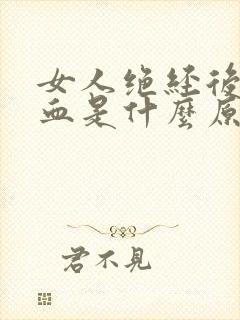 女人绝经後
血是什麼原
君不見